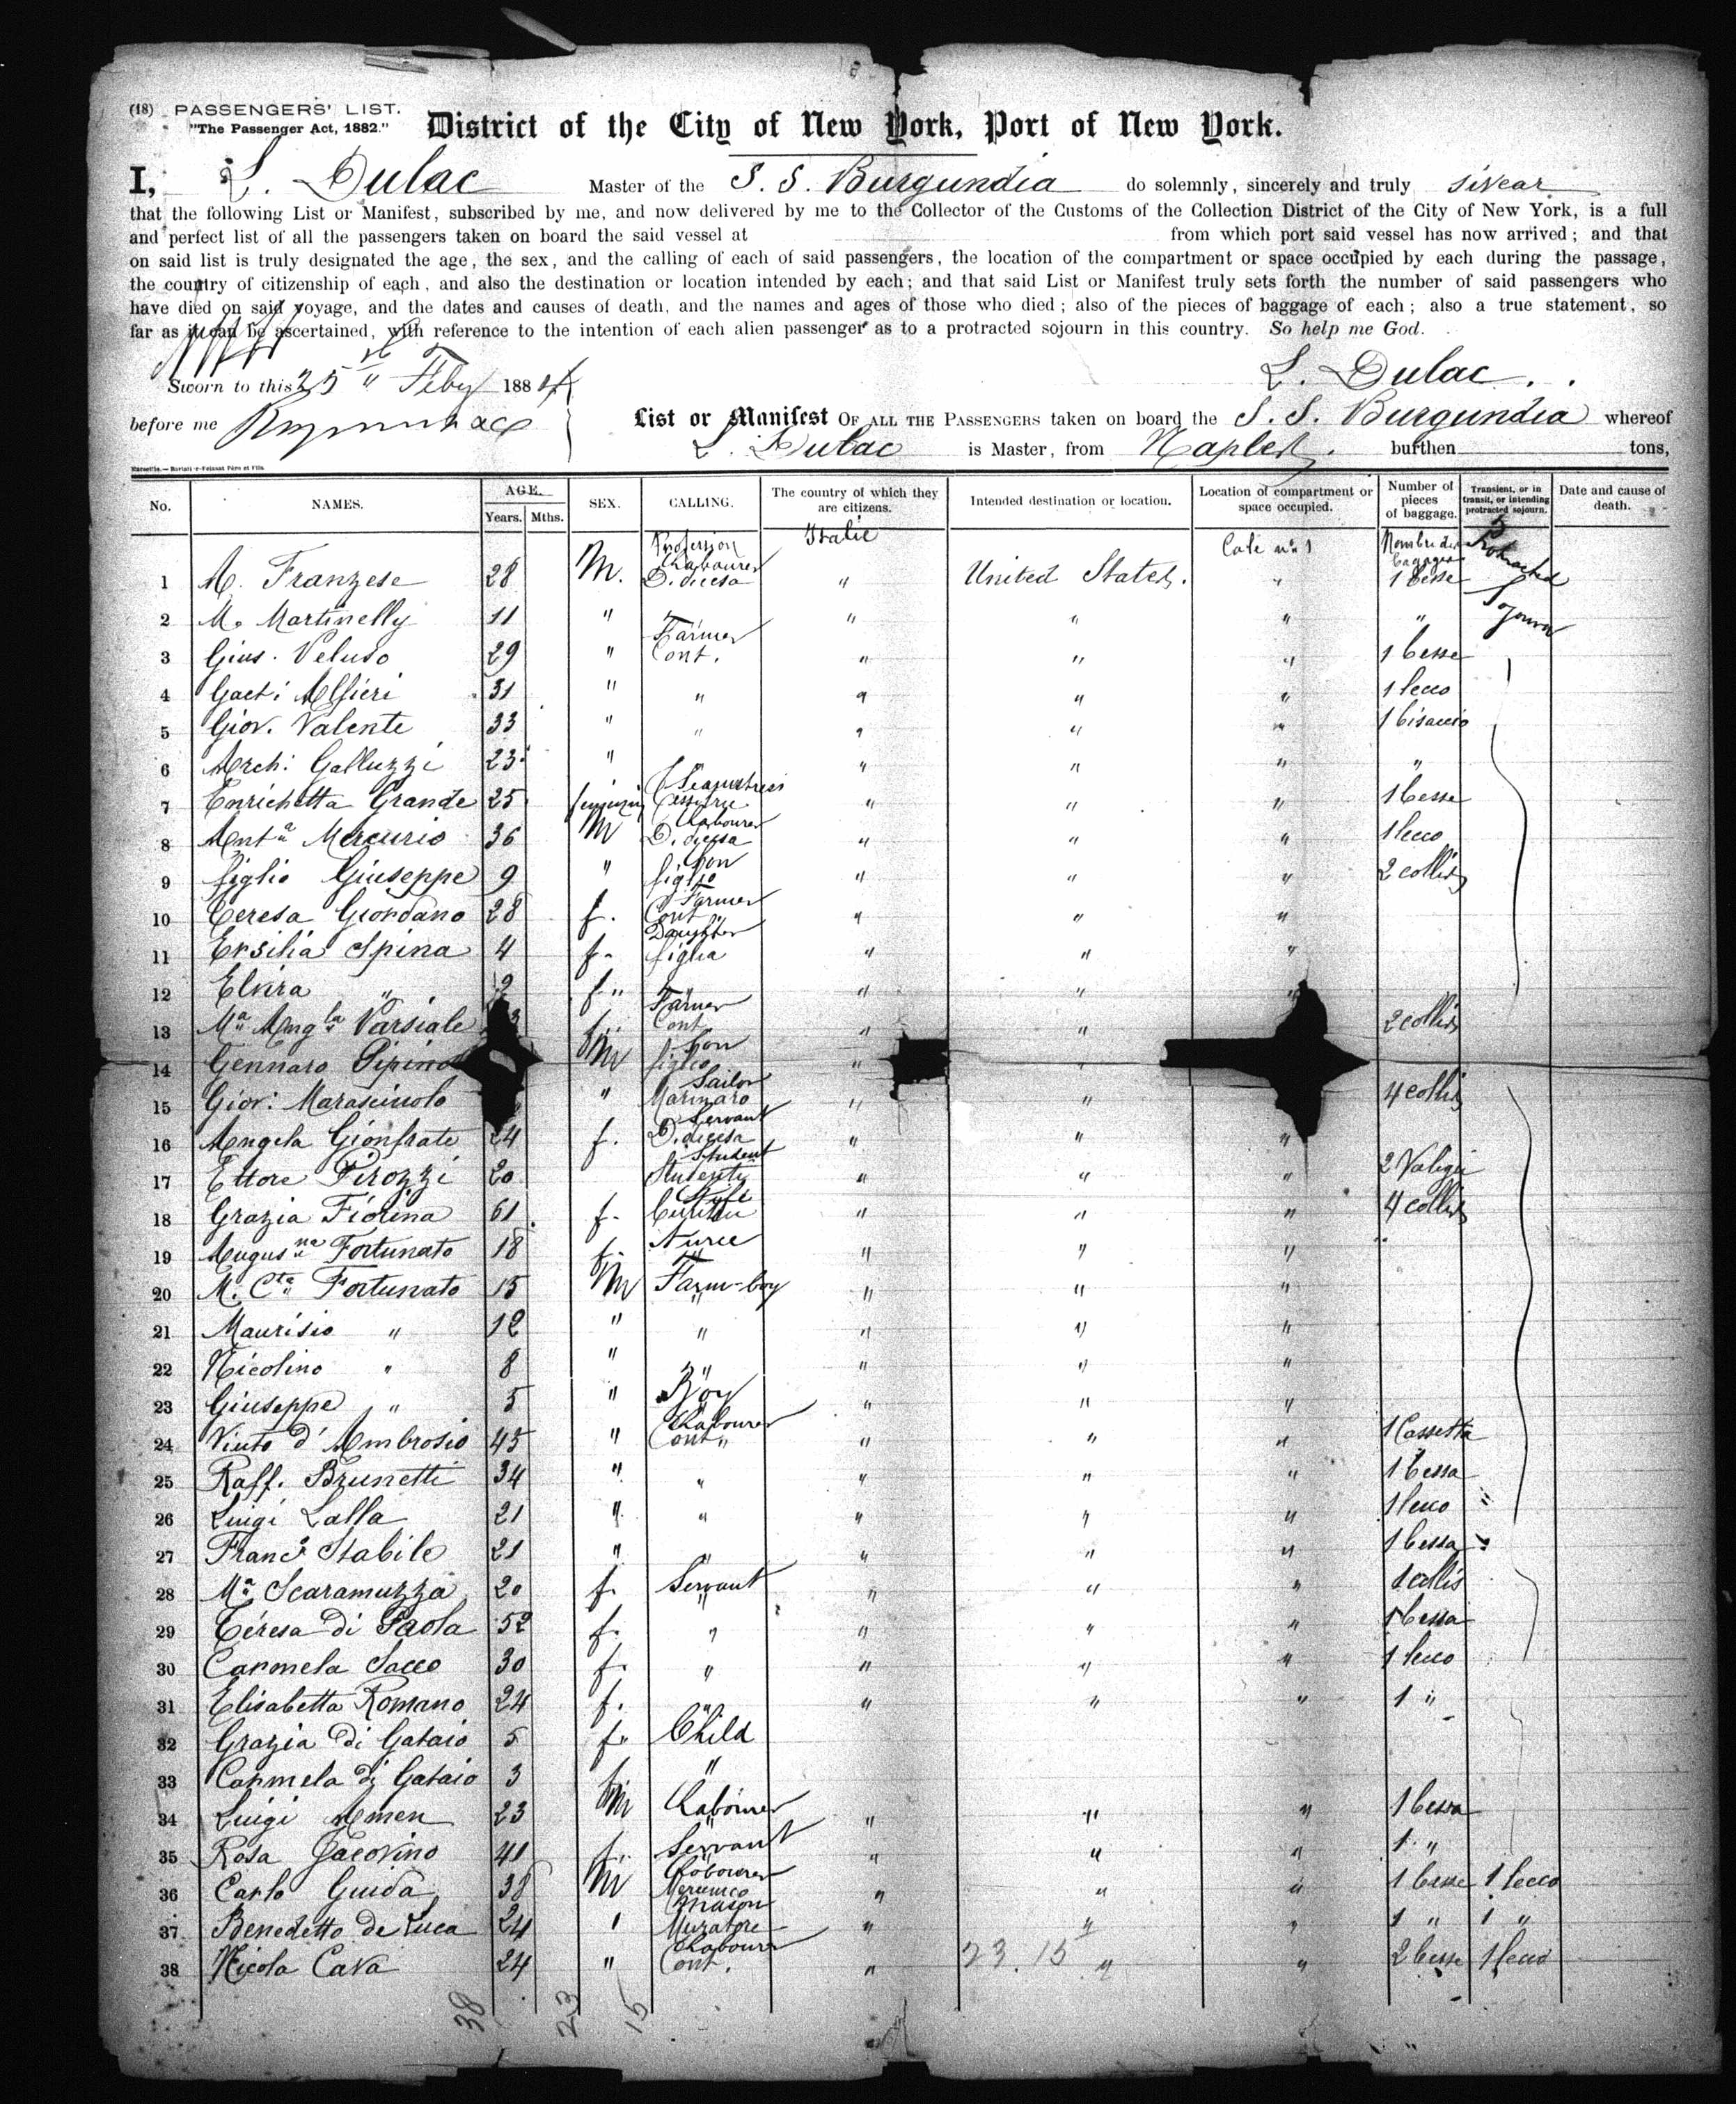 (18) PASSENGERS' LIST.
"The Passenger Act, 1882."
District of the City of New York, Port of New York.
I, L. Dulac Master of the S. S. Burgundia do solemnly, sincerely and truly swear
that the following List or Manifest, subscribed by me, and now delivered by me to the Collector of the Customs of the Collection District of the City of New York, is a full
and perfect list of all the passengers taken on board the said vessel at from which port said vessel has now arrived; and that
on said list is truly designated the age, the sex, and the calling of each of said passengers, the location of the compartment or space occupied by each during the passage,
the country of citizenship of each, and also the destination or location intended by each; and that said List or Manifest truly sets forth the number of said passengers who
have died on said voyage, and the dates and causes of death, and the names and ages of those who died; also of the pieces of baggage of each; also a true statement, so
far as it can be ascertained, with reference to the intention of each alien passenger as to a protracted sojourn in this country. So help me God.
L. Dulac
Sworn to this 25 " Feby 188
before me
List or Manifest OF ALL THE PASSENGERS taken on board the S. S. Burgundia whereof
L. Dulac is Master, from Naples. burthen tons,
No. NAMES. AGE. Years. Mths. SEX. CALLING. The country of which they are citizens. Intended destination or location. Location of compartment or space occupied. Number of pieces of baggage. Transient, or in transit, or intending protracted sojourn. Date and cause of death.
Profession Italie Cale n° 1 Nombre de bagages Protracted Sojourn
1 M. Franzese 28 M. Labourer D. diecsa " United States. " 1 besse
2 M. Martinelly 11 " " " " "
3 Gius. Veluso 29 " Farmer Cont. " " " 1 besse
4 Gaet: Alfieri 31 " " " " " 1 secco
5 Giov. Valente 33 " " " " " 1 bisaccio
6 Arch: Galluzzi 23 " " " " " "
7 Enrichetta Grande 25 Seamstress " " " 1 besse
8 Ant.a Mercurio 36 M Labourer D. diecsa " " " 1 secco
9 figlio Giuseppe 9 " Son figlio " " " 2 collis
10 Teresa Giordano 28 f. Farmer Cont. " " "
11 Ersilia Spina 4 f. Daughter figlia " " "
12 Elvira " f. " " " " "
13 M.a Ang.la Varsiale f. Farmer Cont. " " 2 collis
14 Gennaro Pipino M Son figlio " "
15 Giov: Marasciuolo " Sailor Marinaro " " 4 collis
16 Angela Gionfrate 24 f. Servant D. diecsa " " "
17 Ettore Pirozzi 20 Student Studente " " " 2 Valigie
18 Grazia Fiorina 61 f. " " " 4 collis
19 Augus.na Fortunato 18 f. " " "
20 M. C.ta Fortunato 15 M Farm-boy " " "
21 Maurisio " 12 " " " " "
22 Nicolino " 8 " " " " "
23 Giuseppe " 5 " Boy " " "
24 Vinto d'Ambrosio 45 " Labourer Cont. " " " 1 Cassetta
25 Raff. Brunetti 34 " " " " " 1 bessa
26 Luigi Lalla 21 " " " " " 1 secco
27 Franc.o Stabile 21 " " " " " 1 bessa
28 M.a Scaramuzza 20 f. Servant " " " 1 collis
29 Teresa di Paola 52 f. " " " " 1 bessa
30 Carmela Sacco 30 f. " " " " 1 secco
31 Elisabetta Romano 24 f. " " " " 1 "
32 Grazia di Gataio 5 f. Child
33 Carmela di Gataio 3 f. "
34 Luigi Amen 23 M Labourer " " " 1 bessa
35 Rosa Jacovino 41 f. Servant " " " 1 "
36 Carlo Guida 38 M Labourer " " " 1 besse 1 secco
37 Benedetto de Luca 24 " Mason Muratore " " " 1 " 1 "
38 Nicola Cava 24 " Labourer Cont. " 23.15 " " 2 besse 1 secco
38 23 15